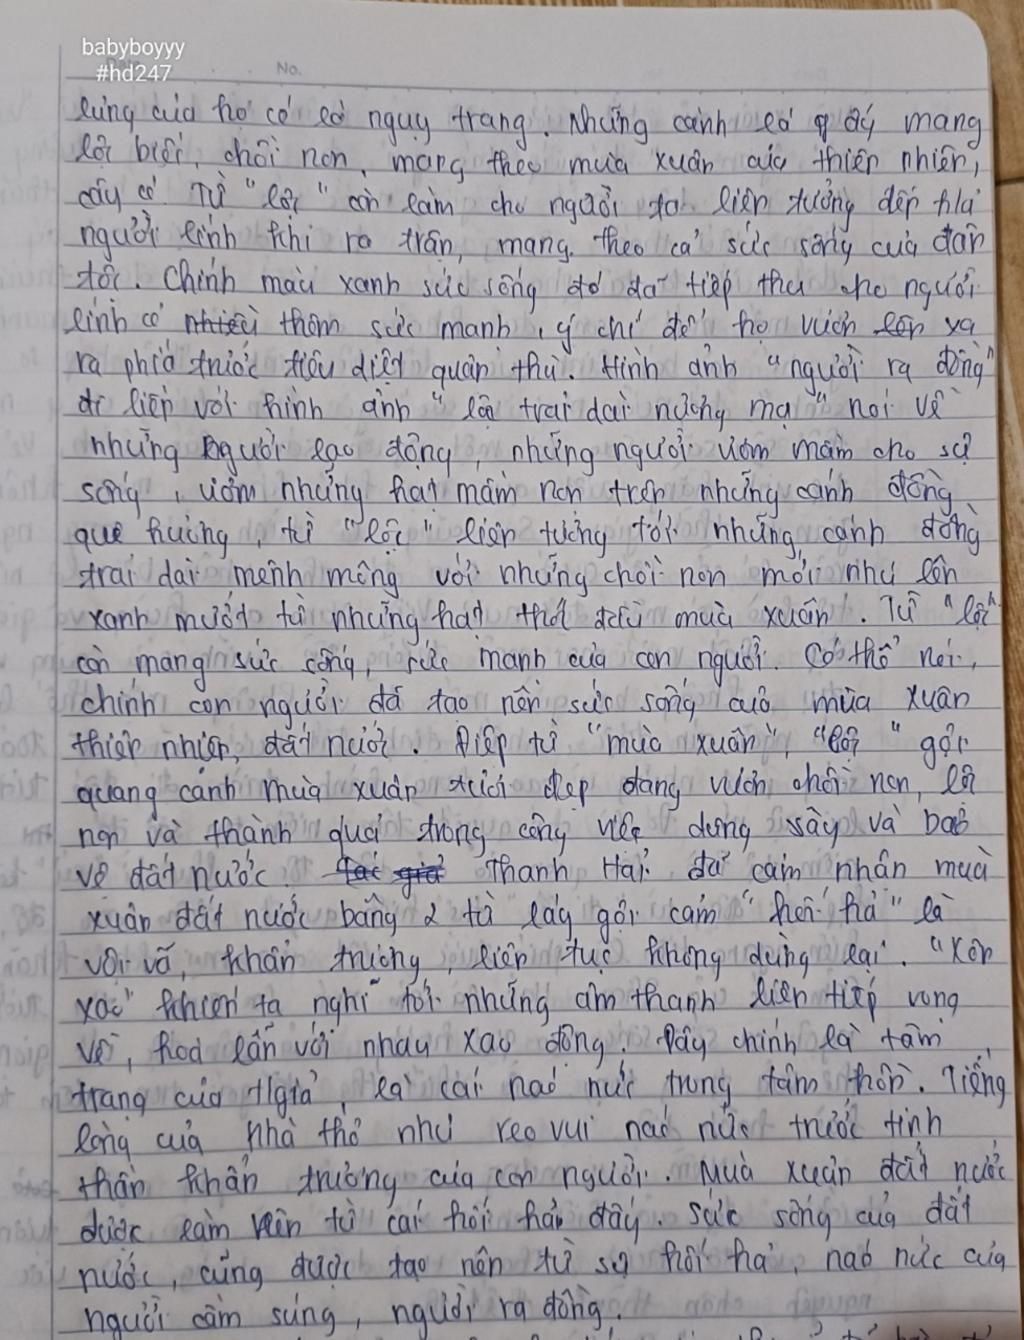 babyboyyy
#hd247
No.
lưng của họ có lá ngụy trang. Những cành lá ấy mang
lộc biếc, chồi non, mang theo mùa xuân của thiên nhiên,
cây cỏ. Từ "lộc" còn làm cho người ta liên tưởng đến
người lính khi ra trận, mang theo cả sức sống của dân
tộc. Chính màu xanh sức sống đó đã tiếp thu cho người
lính có nhiều thêm sức mạnh, ý chí để họ vươn lên xa
ra phía trước tiêu diệt quân thù. Hình ảnh "người ra đồng"
đi liền với hình ảnh "lộc trải dài nương mạ" nói về
những người lao động, những người ươm mầm cho sự
sống, ươm những hạt mầm non trên những cánh đồng
quê hương, từ "lộc" liên tưởng tới những cánh đồng
trải dài mênh mông với những chồi non mới nhú lên
xanh mướt từ những hạt thóc đầu mùa xuân. Từ "lộc"
còn mang sức sống, sức mạnh của con người. Có thể nói,
chính con người đã tạo nên sức sống của mùa xuân
thiên nhiên, đất nước. Điệp từ "mùa xuân", "lộc" gợi
quang cảnh mùa xuân tươi đẹp đang vươn chồi non, lộc
non và thành quả trong công việc dựng xây và bảo
vệ đất nước. tác giả Thanh Hải đã cảm nhận mùa
xuân đất nước bằng 2 từ láy gợi cảm "hối hả" là
vội vã, khẩn trương, liên tục không dừng lại. "Xôn
xao" khiến ta nghĩ tới những âm thanh liên tiếp vọng
về, hoà lẫn với nhau xao động. Đây chính là tâm
trạng của t/giả, là cái náo nức trong tâm hồn. Tiếng
lòng của nhà thơ như reo vui náo nức trước tinh
thần khẩn trương của con người. Mùa xuân đất nước
được làm nên từ cái hối hả đấy. Sức sống của đất
nước, cũng được tạo nên từ sự hối hả, náo nức của
người cầm súng, người ra đồng.